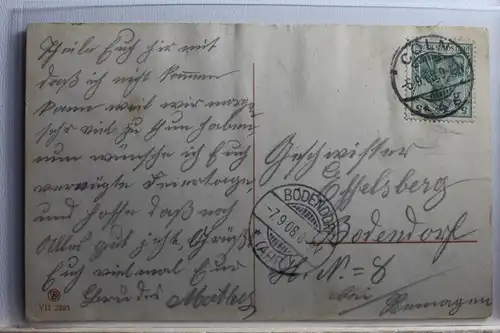 Theile Euch hir mit
daß ich nicht kommen
kann weil wir
sehr viel zu thun haben
nun wünsche ich Euch
vernügte Feiertage
und hoffe daß noch
Alles gut geht. Grüße
Euch viel mal Eur
Bruder Mathes
VII 2293
CÖLN
Geschwister
Effelsberg
BODENDORF
-7.9.08.
(AHR)
Bodendorf
H. N.= 8
bei Remagen